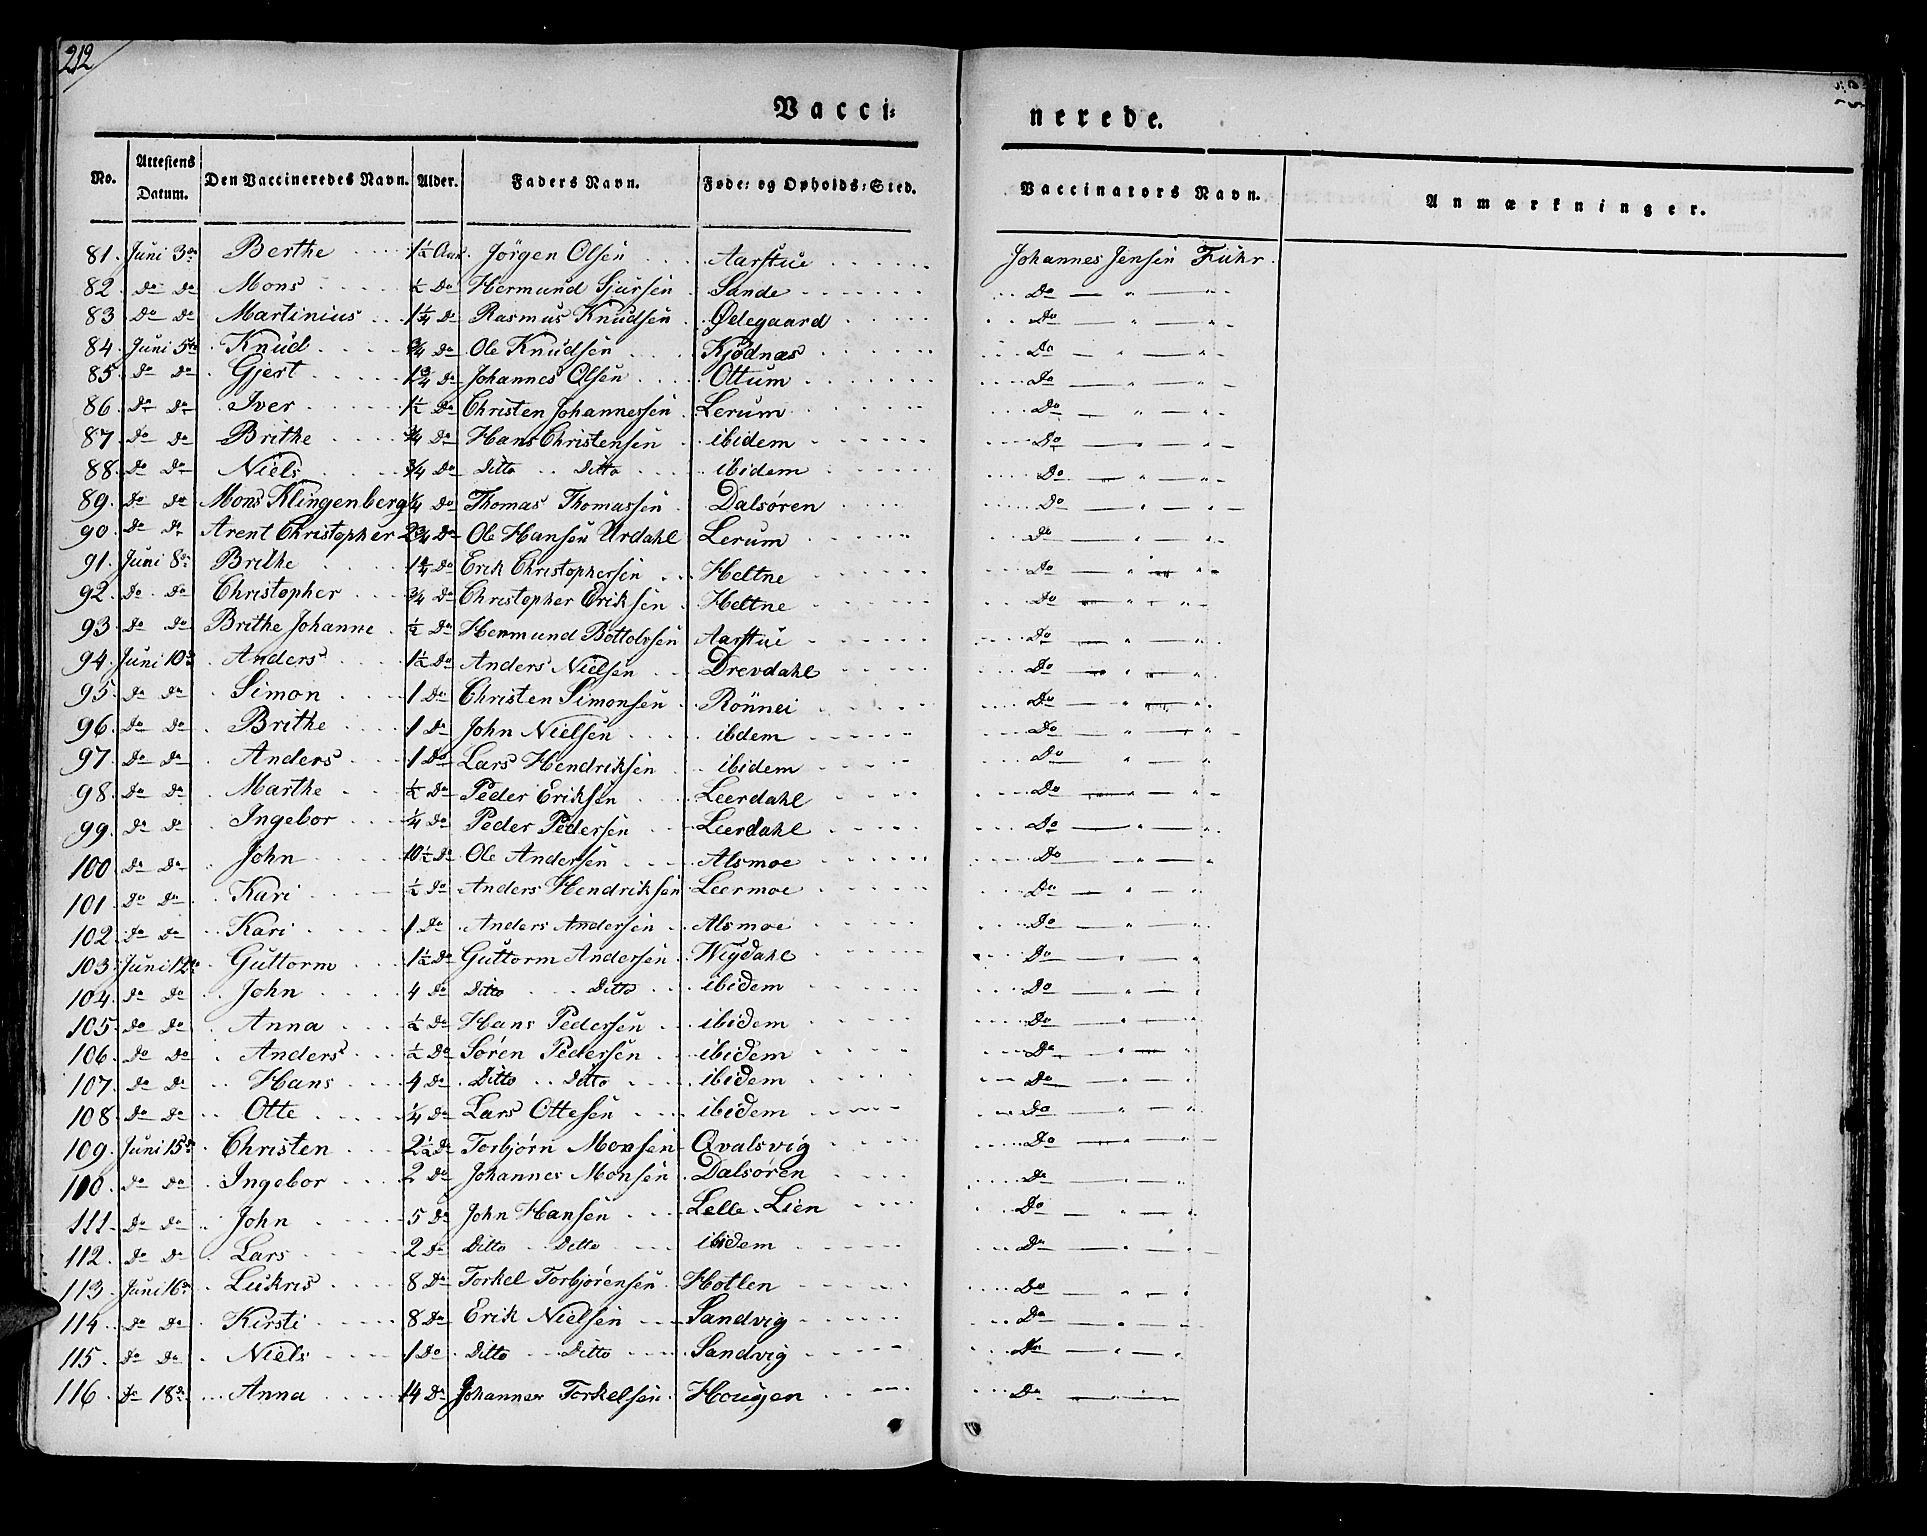 212
Vacci: nerede.
No. Attestens Datum. Den Vaccineredes Navn. Alder. Faders Navn. Føde: og Opholds: Sted. Vaccinators Navn. Anmærkninger.
81. Juni 3die Berthe 1½ Aar. Jörgen Olsen Aarstue Johannes Jensen Fuhr.
82 Do Do Mons ½ Do Hermund Sjursen Sande Do
83 Do Do Martinius 1¼ Do Rasmus Knudsen Ødegaard Do
84. Juni 5te Knud ¾ Do Ole Knudsen Kjødnæs Do
85. Do Do Gjert 1¾ Do Johannes Olsen Ottum Do
86 Do Do Iver 1½ Do Christen Johannessen Lerum Do
87. Do Do Brithe ¾ Do Hans Christensen ibidem Do
88. Do Do Niels ¾ Do Ditto Ditto ibidem Do
89. Do Do Mons Klingenberg ¼ Do Thomas Thomassen Dalsøren Do
90. Do Do Arent Christopher 2¾ Do Ole Hansen Urdahl Lerum Do
91. Juni 8de Brithe 1¼ Do Erik Christophersen Heltne Do
92. Do Do Christopher ¾ Do Christopher Eriksen Heltne Do
93. Do Do Brithe Johanne ½ Do Hermund Bottolvsen Aarstue Do
94. Juni 10de Anders 1½ Do Anders Nielsen Drevdahl Do
95. Do Do Simon 1 Do Christen Simonsen Rönnei Do
96. Do Do Brithe 1 Do John Nielsen ibdem Do
97. Do Do Anders 1 Do Lars Hendriksen ibidem Do
98. Do Do Marthe ½ Do Peder Eriksen Leerdahl Do
99. Do Do Ingebor ¼ Do Peder Pedersen Leerdahl Do
100 Do Do John 10½ Do Ole Andersen Alsmoe Do
101. Do Do Kari ½ Do Anders Hendriksen Leermoe Do
102. Do Do Kari 1 Do Anders Andersen Alsmoe Do
103. Juni 12te Guttorm 1½ Do Guttorm Andersen Wigdahl Do
104. Do Do John 4 Do Ditto Ditto ibidem Do
105. Do Do Anna ½ Do Hans Pedersen ibidem Do
106. Do Do Anders ½ Do Søren Pedersen ibidem Do
107. Do Do Hans 4 Do Ditto Ditto ibidem Do
108. Do Do Otte ¼ Do Lars Ottesen ibidem Do
109. Juni 15de Christen 2½ Do Torbjørn Monsen Qvalsvig Do
110. Do Do Ingebor 2 Do Johannes Monsen Dalsøren Do
111. Do Do John 5 Do John Hansen Lelle-Lien Do
112. Do Do Lars 2 Do Ditto Ditto ibidem Do
113. Juni 16de Lukris 8 Do Torkel Torbjørensen Hotlen Do
114. Do Do Kirsti 8 Do Erik Nielsen Sandvig Do
115. Do Do Niels 1 Do Ditto Ditto Sandvig Do
116. Do 18de Anna 14 Do Johannes Torkelsen Hougen Do